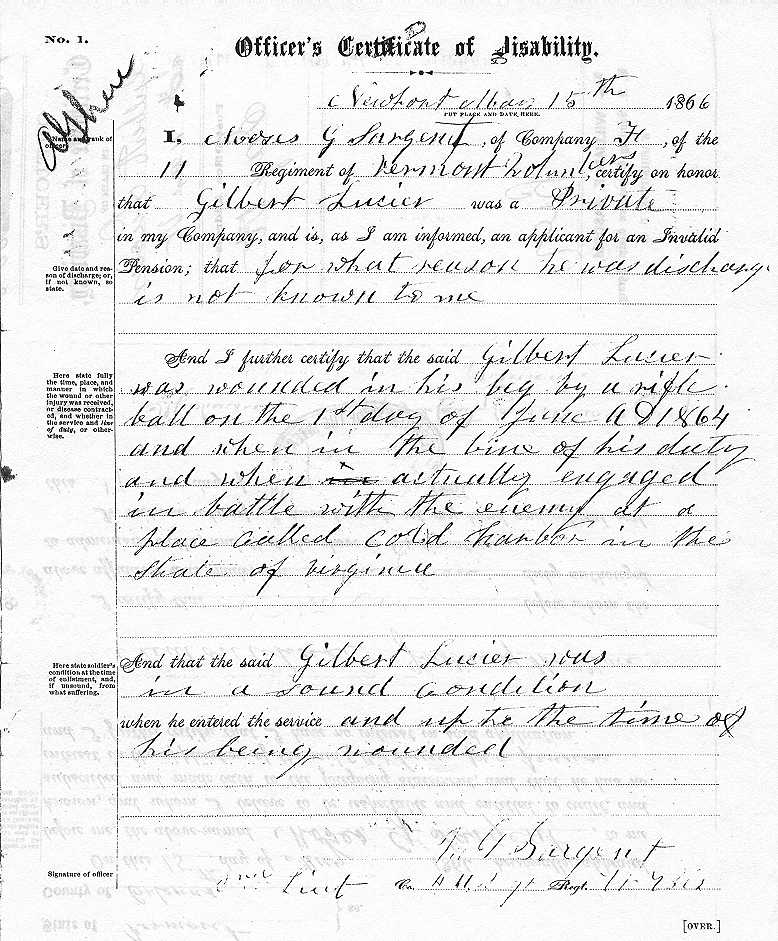 No. 1.
Officer's Certificate of Disability.
Newport May 15th 1866
PUT PLACE AND DATE HERE.
Name and rank of officer.
I, Moses G Sargent, of Company F, of the
11 Regiment of Vermont Volunteers, certify on honor
that Gilbert Lusier was a Private
in my Company, and is, as I am informed, an applicant for an Invalid
Give date and reason of discharge; or, if not known, so state.
Pension; that for what reason he was discharge
is not known to me
And I further certify that the said Gilbert Lusier
Here state fully the time, place, and manner in which the wound or other injury was received, or disease contracted, and whether in the service and line of duty, or otherwise.
was wounded in his leg by a rifle
ball on the 1st day of June A D 1864
and when in the line of his duty
and when in actually engaged
in battle with the enemy at a
place called Cold Harbor in the
State of Virginia
Here state soldier's condition at the time of enlistment, and, if unsound, from what suffering.
And that the said Gilbert Lusier was
in a sound condition
when he entered the service and up to the time of
his being wounded
M G Sargent
Signature of officer
Lieut Co. Regt. 11
[OVER.]